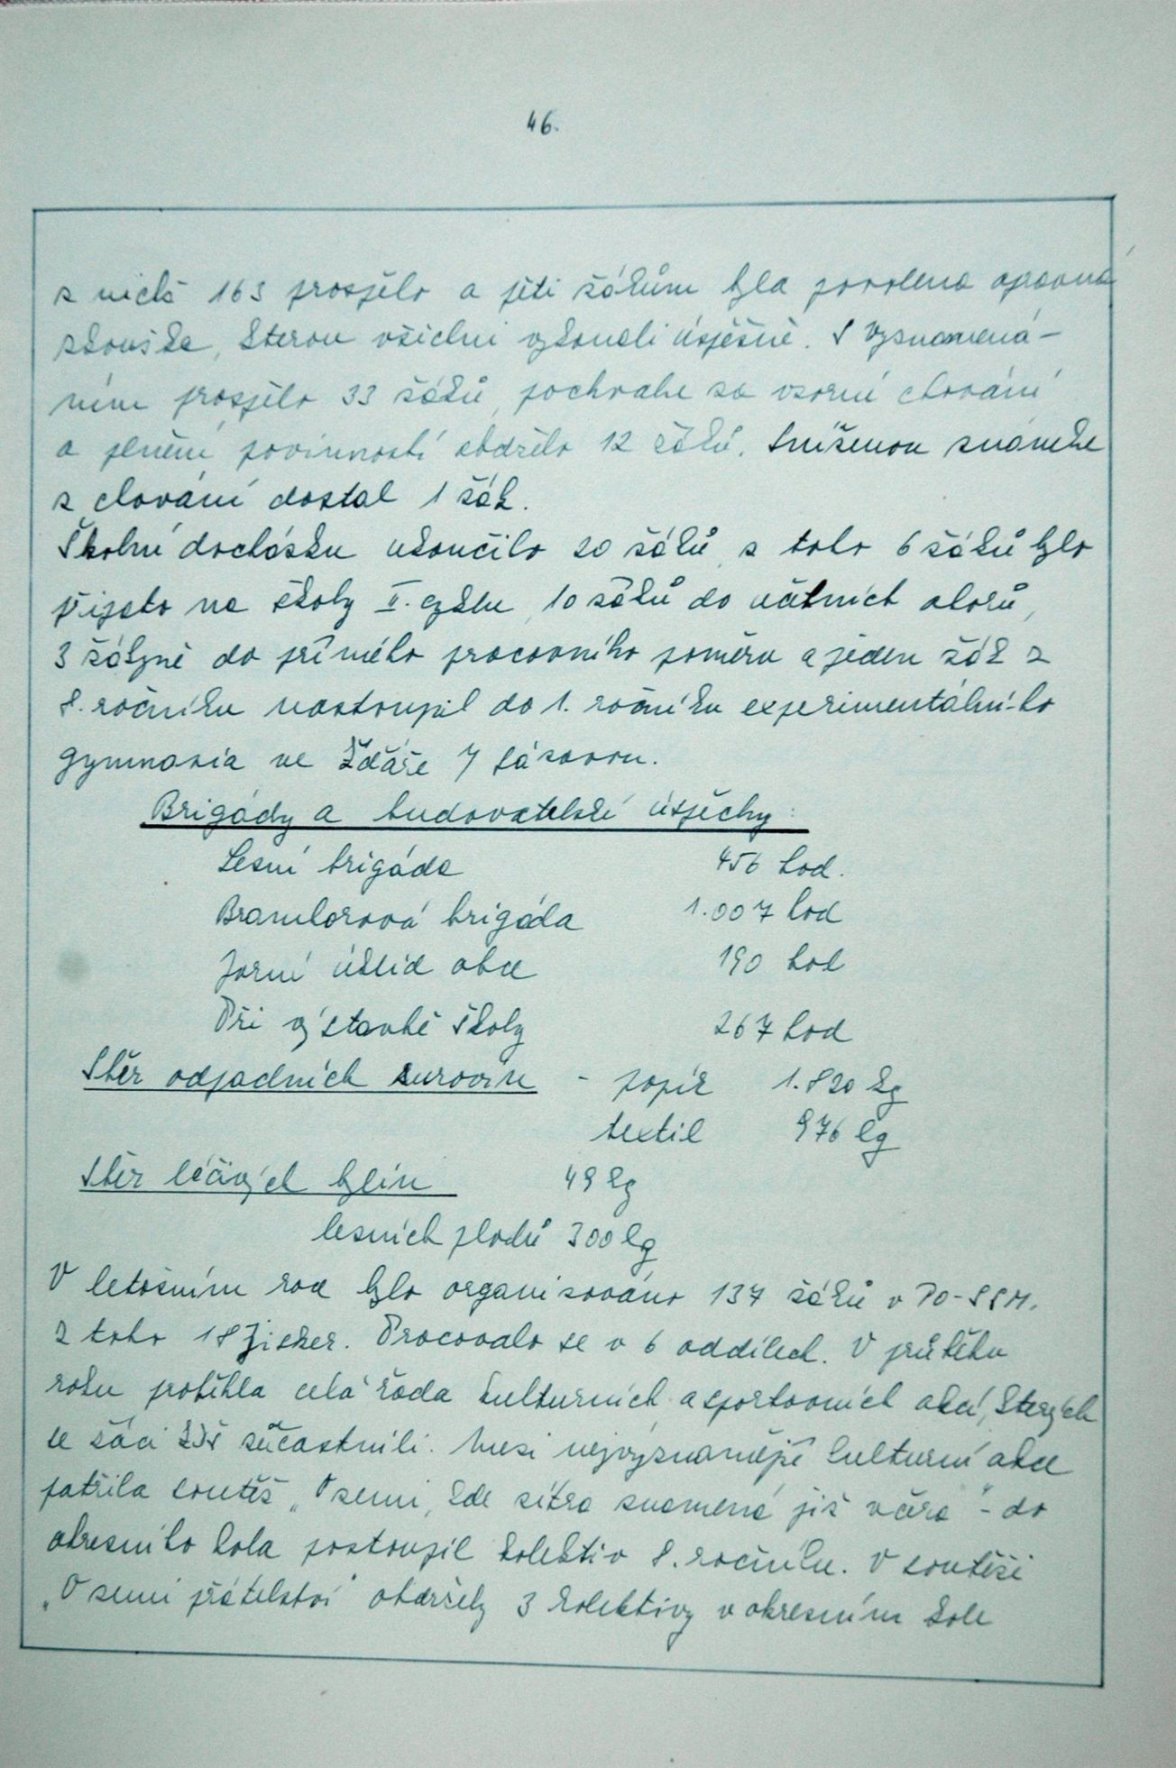 46.
z nichž 163 prospělo a pěti žákům byla povolena opravná
zkouška, kterou všichni vykonali úspěšně. S vyznamená-
ním prospělo 33 žáků, pochvalu za vzorné chování
a plnění povinností obdrželo 12 žáků. Sníženou známku
z chování dostal 1 žák.
Školní docházku ukončilo 20 žáků, z toho 6 žáků bylo
přijato na školy II. cyklu, 10 žáků do učebních oborů,
3 žákyně do přímého pracovního poměru a jeden žák z
8. ročníku nastoupil do 1. ročníku experimentálního
gymnasia ve Žďáře n/Sázavou.
Brigády a budovatelské úspěchy:
Lesní brigáda 456 hod.
Bramborová brigáda 1.007 hod
Jarní úklid obce 190 hod
Při výstavbě školy 267 hod
Sběr odpadních surovin - papír 1.820 kg
textil 976 kg
Sběr léčivých bylin 49 kg
lesních plodů 300 kg
V letošním roce bylo organisováno 137 žáků v PO-SSM.
z toho 18 Jisker. Pracovalo se v 6 oddílech. V průběhu
roku proběhla celá řada kulturních a sportovních akcí, kterých
se žáci ZDŠ súčastnili. Mezi nejvýznamější kulturní akce
patřila soutěž „O zemi, kde zítra znamená již včera" - do
okresního kola postoupil kolektiv 8. ročníku. V soutěži
„O zemi přátelství" obdržely 3 kolektivy v okresním kole